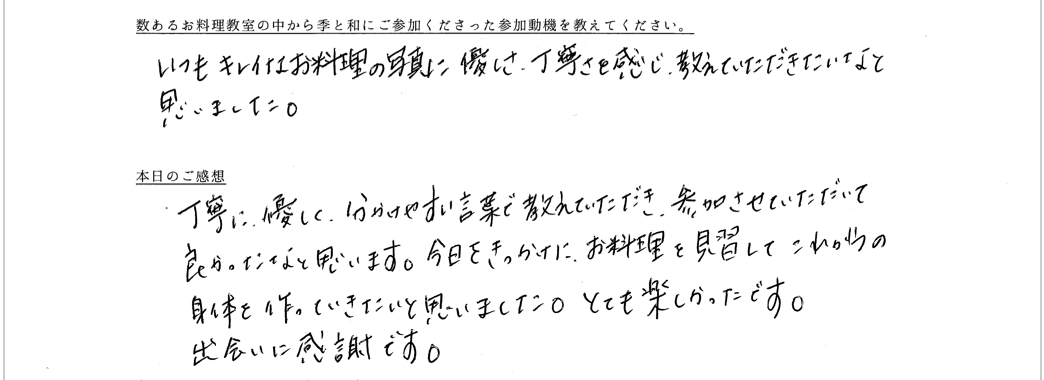 数あるお料理教室の中から季と和にご参加くださった参加動機を教えてください。
いつも キレイなお料理の写真に 優しさ、丁寧さを感じ、教えていただきたいなと
思いました。
本日のご感想
丁寧に、優しく、分かりやすい言葉で教えていただき、参加させていただいて
良かったなと思います。今日をきっかけに、お料理を見習して これからの
身体を作っていきたいと思いました。とても楽しかったです。
出会いに感謝です。